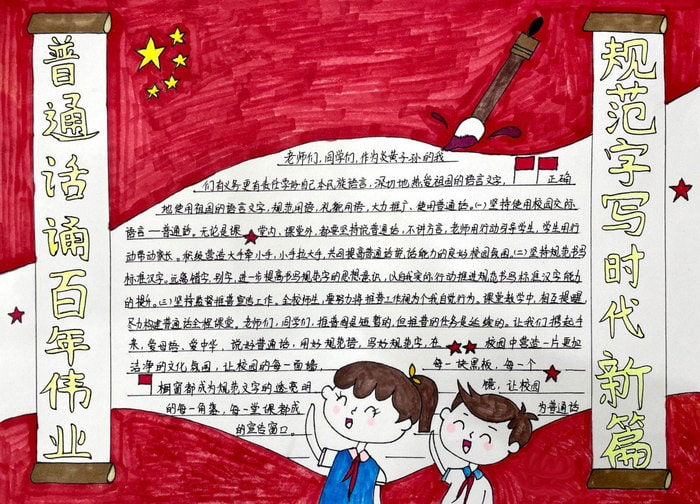 普通话诵百年伟业
规范字写时代新篇
老师们,同学们,作为炎黄子孙的我
们有义务更有责任学好自己本民族语言,深切地热爱祖国的语言文字, 正确
地使用祖国的语言文字,规范用语,礼貌用语,大力推广、使用普通话。(一)坚持使用校园交际
语言——普通话。无论是课 堂内、课堂外,都要坚持说普通话,不讲方言。老师用行动引导学生,学生用行
动带动家长。积极营造大手牵小手,小手拉大手,共同提高普通话说话能力的良好校园氛围。(二)坚持规范书写
标准汉字。远离错字、别字,进一步提高书写规范字的思想意识,以自我实际行动推进规范书写标准汉字能力
的提升。(三)坚持监督推普宣传工作。全校师生,要努力将推普工作视为个我自觉行为,课堂教学中,相互提醒
尽力构建普通话全程课堂。老师们,同学们,推普周是短暂的,但推普的任务是延续的。让我们携起手
来,爱母语、爱中华,说好普通话,用好规范语,写好规范字,在 校园中营造一片更加
洁净的文化氛围,让校园的每一面墙, 每一块黑板,每一个
橱窗都成为规范文字的透亮明 镜,让校园
的每一角落,每一堂课都成 为普通话
的宣传窗口。